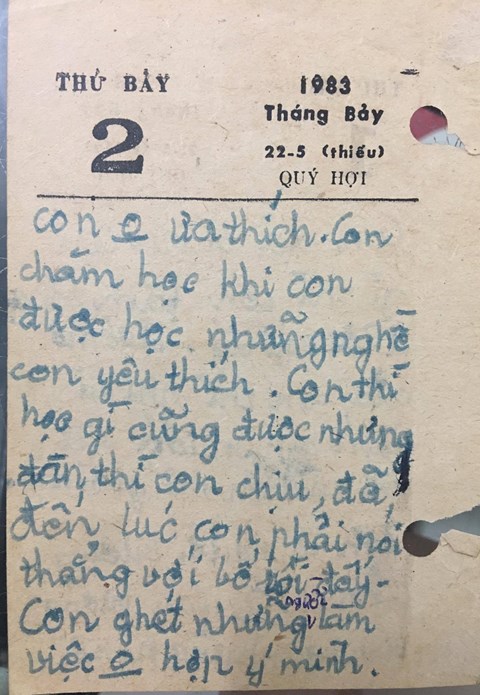 THỨ BẢY
2
1983
Tháng Bảy
22-5 (thiếu)
QUÝ HỢI
con o ưa thích. Con
chăm học khi con
được học những nghề
con yêu thích. Con thì
học gì cũng được nhưng
đàn thì con chịu, đã
đến lúc con phải nói
thẳng với bố rồi đấy.
người
Con ghét những làm
việc o hợp ý mình.